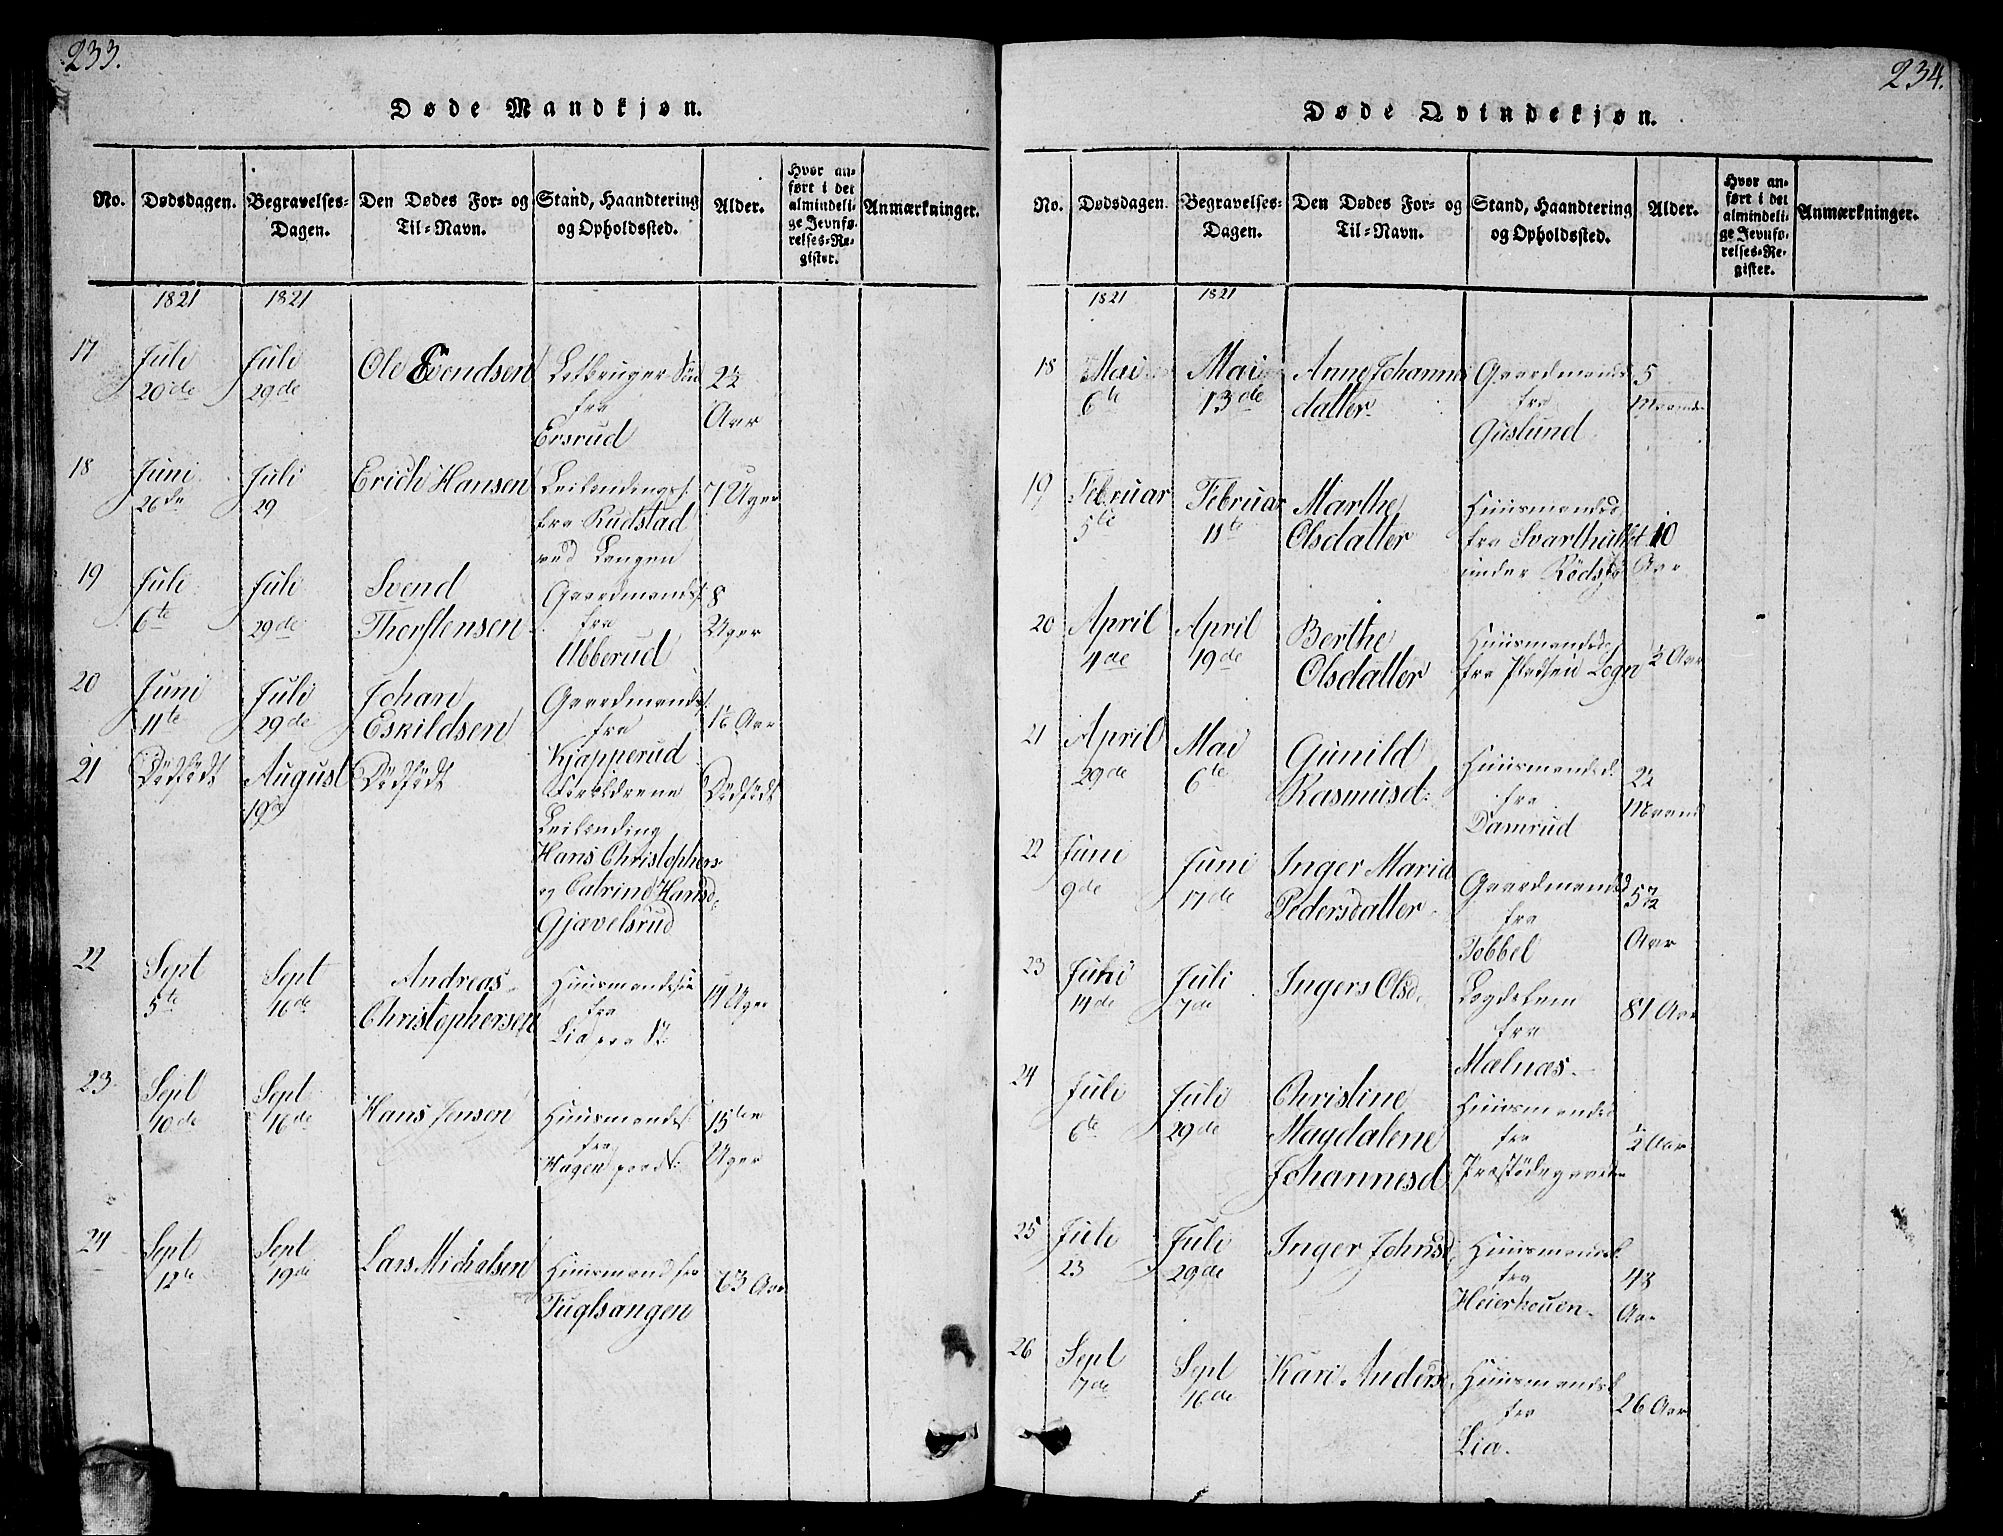 233.
Døde Mandkjøn.
No.
Dødsdagen.
Begravelses-
Dagen.
Den Dødes For- og
Til-Navn.
Stand, Haandtering
og Opholdssted.
Alder.
Hvor an-
ført i det
almindeli-
ge Jevnfø-
relses-Re-
gister.
Anmærkninger.
1821
1821
17
Juli
20de
Juli
29de
Ole Evendsen
fra
Ersrud
2½
Aar
18
Juni
26de
Juli
29
Erich Hansen
Leilendings
fra Rudstad
ved Langen
7 Uger
19
Juli
6te
Juli
29de
Svend
Thorstensen
Gaardmands
fra
Ubberud
8
Uger
20
Juni
11te
Juli
29de
Johan
Eskildsen
Gaardmands
fra
Kjapperud
Aar
21
Dödfödt
August
19de
Dödfödt
Forældrene
Leilending
Hans Christophers
og Catrine Hansd:
Gjavelsrud
Dödfödt
22
Sept
5te
Sept
16de
Andreas
Christophersen
Huusmandssön
fra
Lia
14 Uger
23
Sept
10de
Sept
16de
Hans Jensen
Huusmands:
fra
Hagen
15ten
Uger
24
Sept
12te
Sept
19de
Lars Michelsen
Huusmand fra
Fuglsangen
63 Aar
234.
Døde Qvindekjøn.
No.
Dødsdagen.
Begravelses-
Dagen.
Den Dødes For- og
Til-Navn.
Stand, Haandtering
og Opholdssted.
Alder.
Hvor an-
ført i det
almindeli-
ge Jevnfø-
relses-Re-
gister.
Anmærkninger.
1821
1821
18
Mai
6te
Mai
13de
Anne Johannes
datter
Gaardmands
fra
Guslund
5
Maaned
19
Februar
5te
Februar
11te
Marthe
Olsdatter
Huusmandsd
fra Svarthullet
under
10
Aar
20
April
4de
April
19de
Berthe
Olsdatter
Huusmandsd
fra Pladsen Logn
½ Aar
21
April
29de
Mai
6te
Gunild
Rasmusd:
Huusmandsd
fra
Damrud
2½
Maaned
22
Juni
9de
Juni
17de
Inger Maria
Pedersdatter
Gaardmandsd
fra
Tobbel
5½
Aar
23
Juni
14de
Juli
7de
Ingers Olsd:
Lægdslem
fra
Mælnæs
81 Aar
24
Juli
6te
Juli
29de
Christine
Magdalene
Johannesd
Huusmandsd
fra
Præstödegaarden
½ Aar
25
Juli
23
Juli
29de
Inger Johnsd
Huusmands
fra
Heierhouen
48
Aar
26
Sept
7de
Sept
16de
Kari Andersd
Huusmands
fra
Lia.
26 Aar